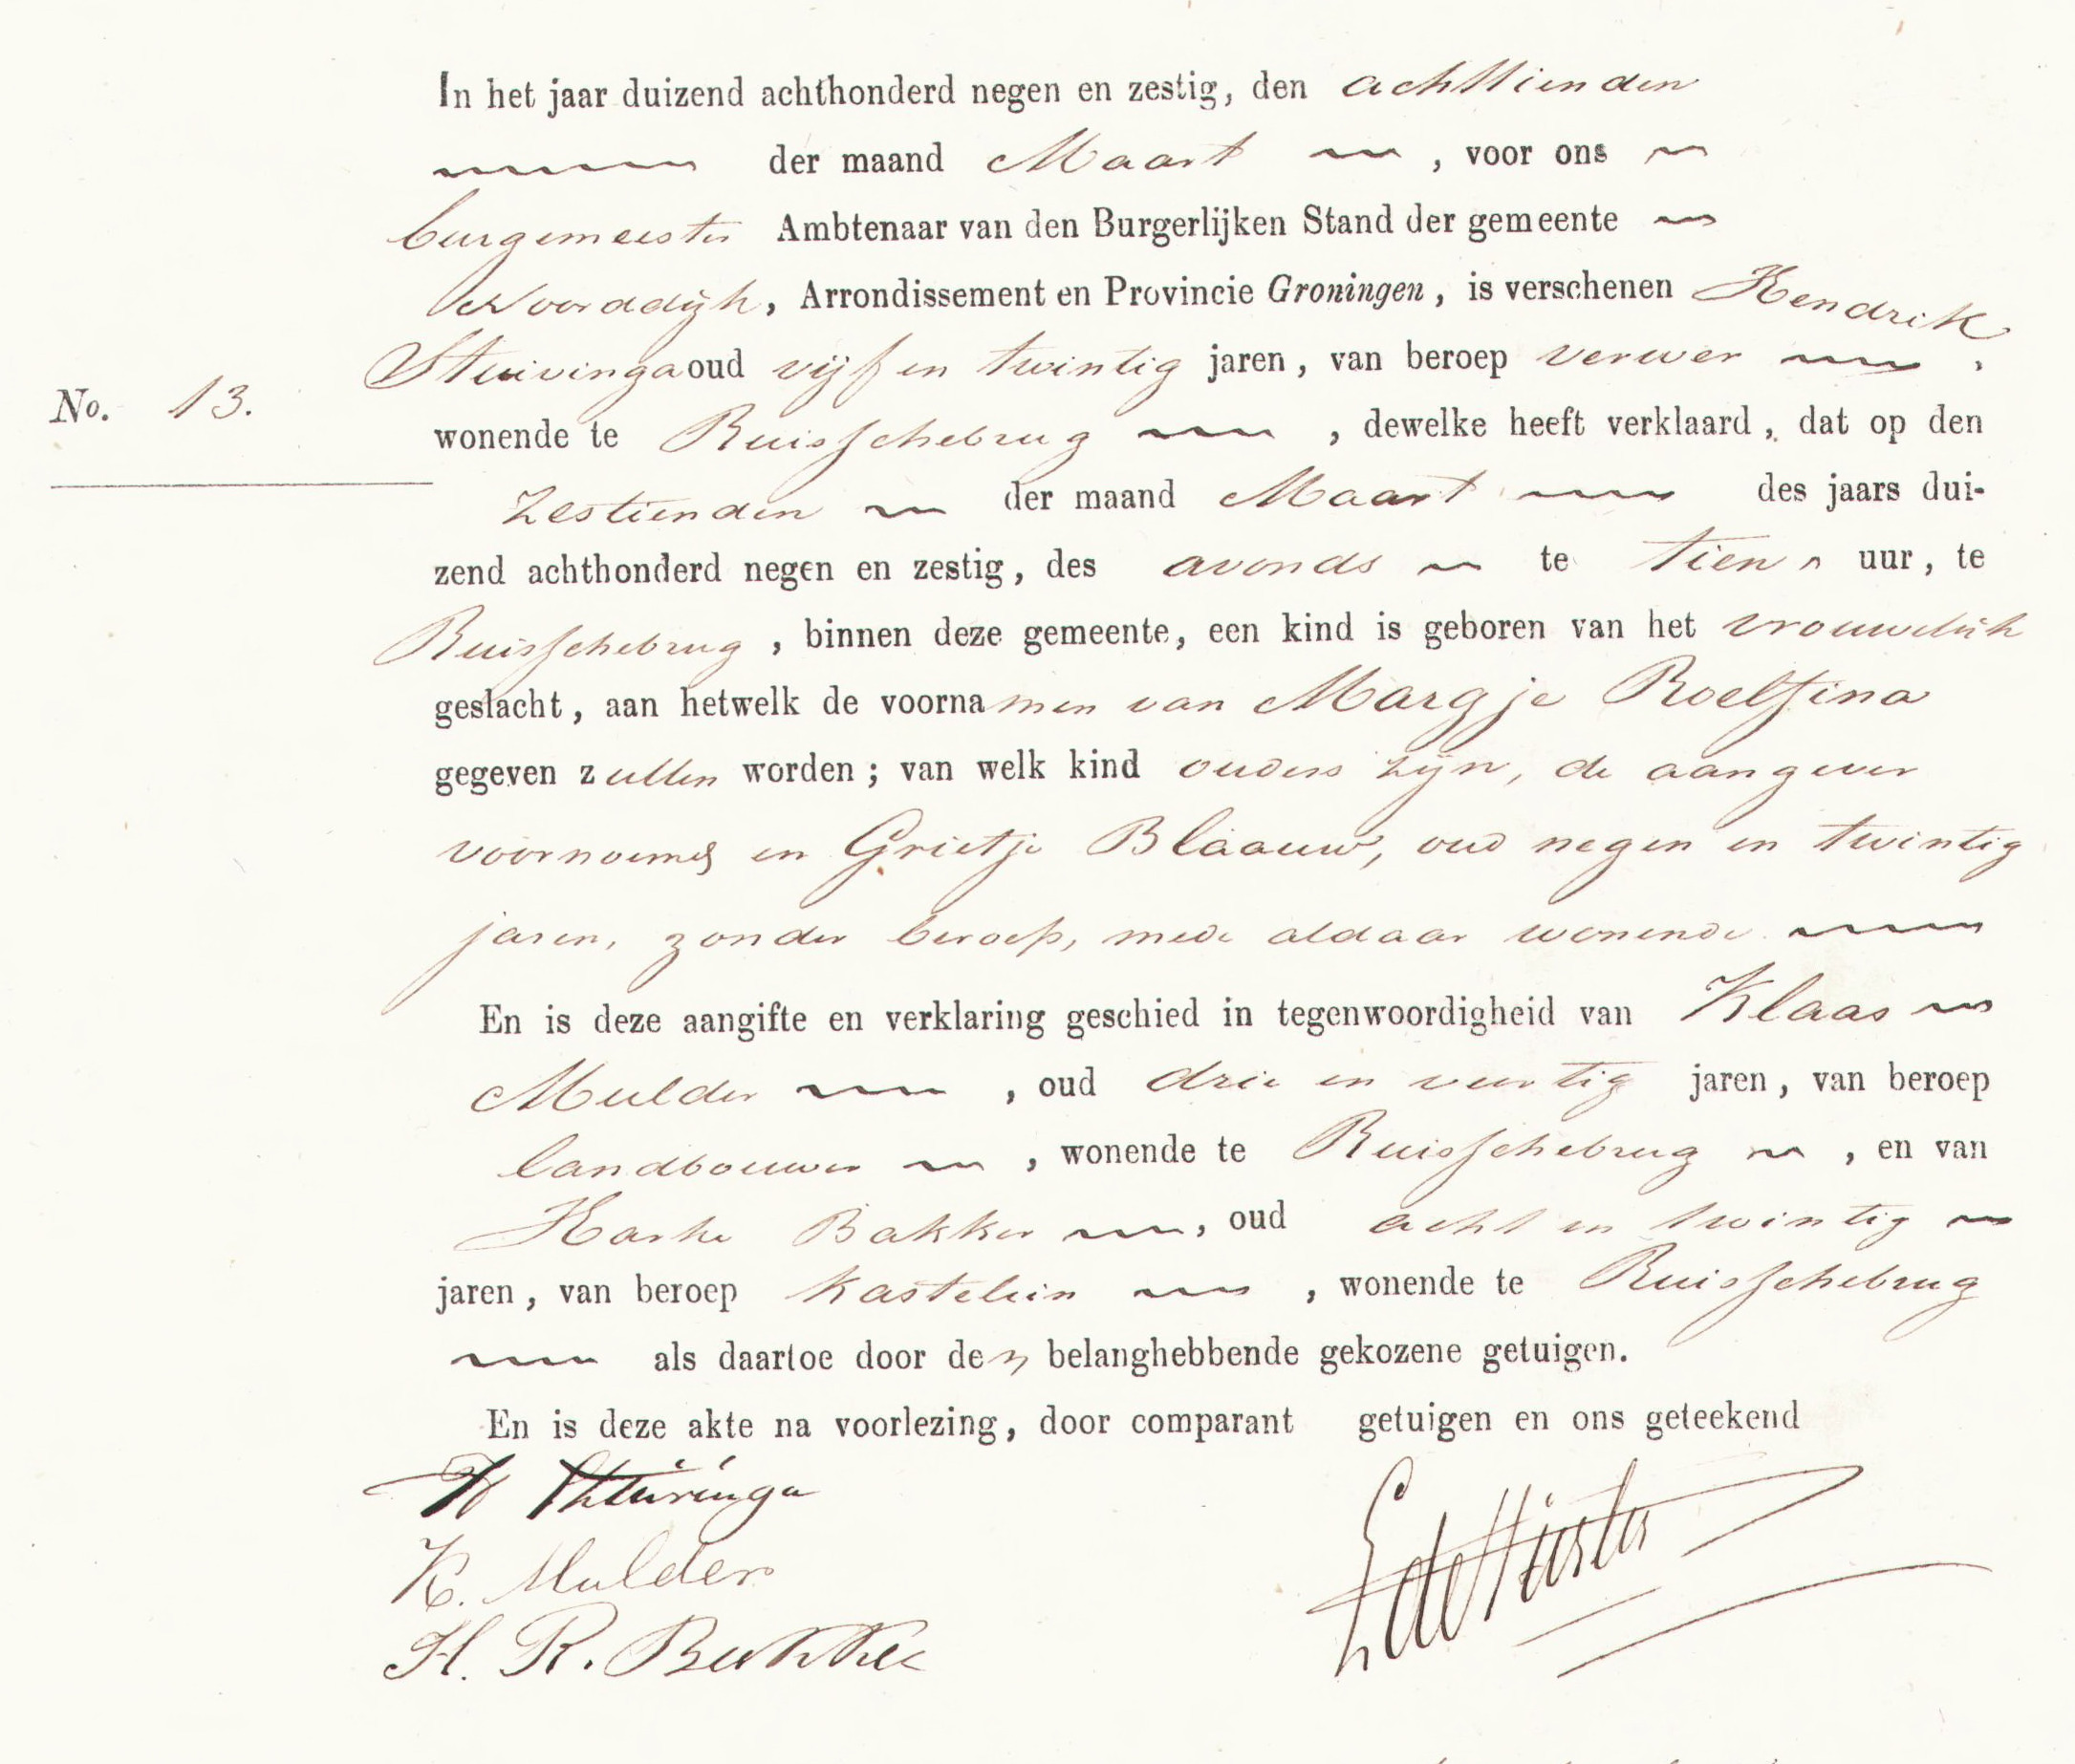 In het jaar duizend achthonderd negen en zestig, den achttienden
der maand Maart, voor ons
burgemeester Ambtenaar van den Burgerlijken Stand der gemeente
Noorddijk, Arrondissement en Provincie Groningen, is verschenen Hendrik
Stuivinga oud vijf en twintig jaren, van beroep verwer,
No. 13.
wonende te Ruisschebrug, dewelke heeft verklaard, dat op den
zestienden der maand Maart des jaars dui-
zend achthonderd negen en zestig, des avonds te tien uur, te
Ruisschebrug, binnen deze gemeente, een kind is geboren van het vrouwelijk
geslacht, aan hetwelk de voornamen van Margje Roelfina
gegeven zullen worden; van welk kind ouders zijn, de aangever
voornoemd en Grietje Blaauw, oud negen en twintig
jaren, zonder beroep, mede aldaar wonende
En is deze aangifte en verklaring geschied in tegenwoordigheid van Klaas
Mulder, oud drie en veertig jaren, van beroep
landbouwer, wonende te Ruisschebrug, en van
Harke Bakker, oud acht en twintig
jaren, van beroep kastelein, wonende te Ruisschebrug
als daartoe door den belanghebbende gekozene getuigen.
En is deze akte na voorlezing, door comparant getuigen en ons geteekend
H Stuivinga
K. Mulder
H. R. Bakker